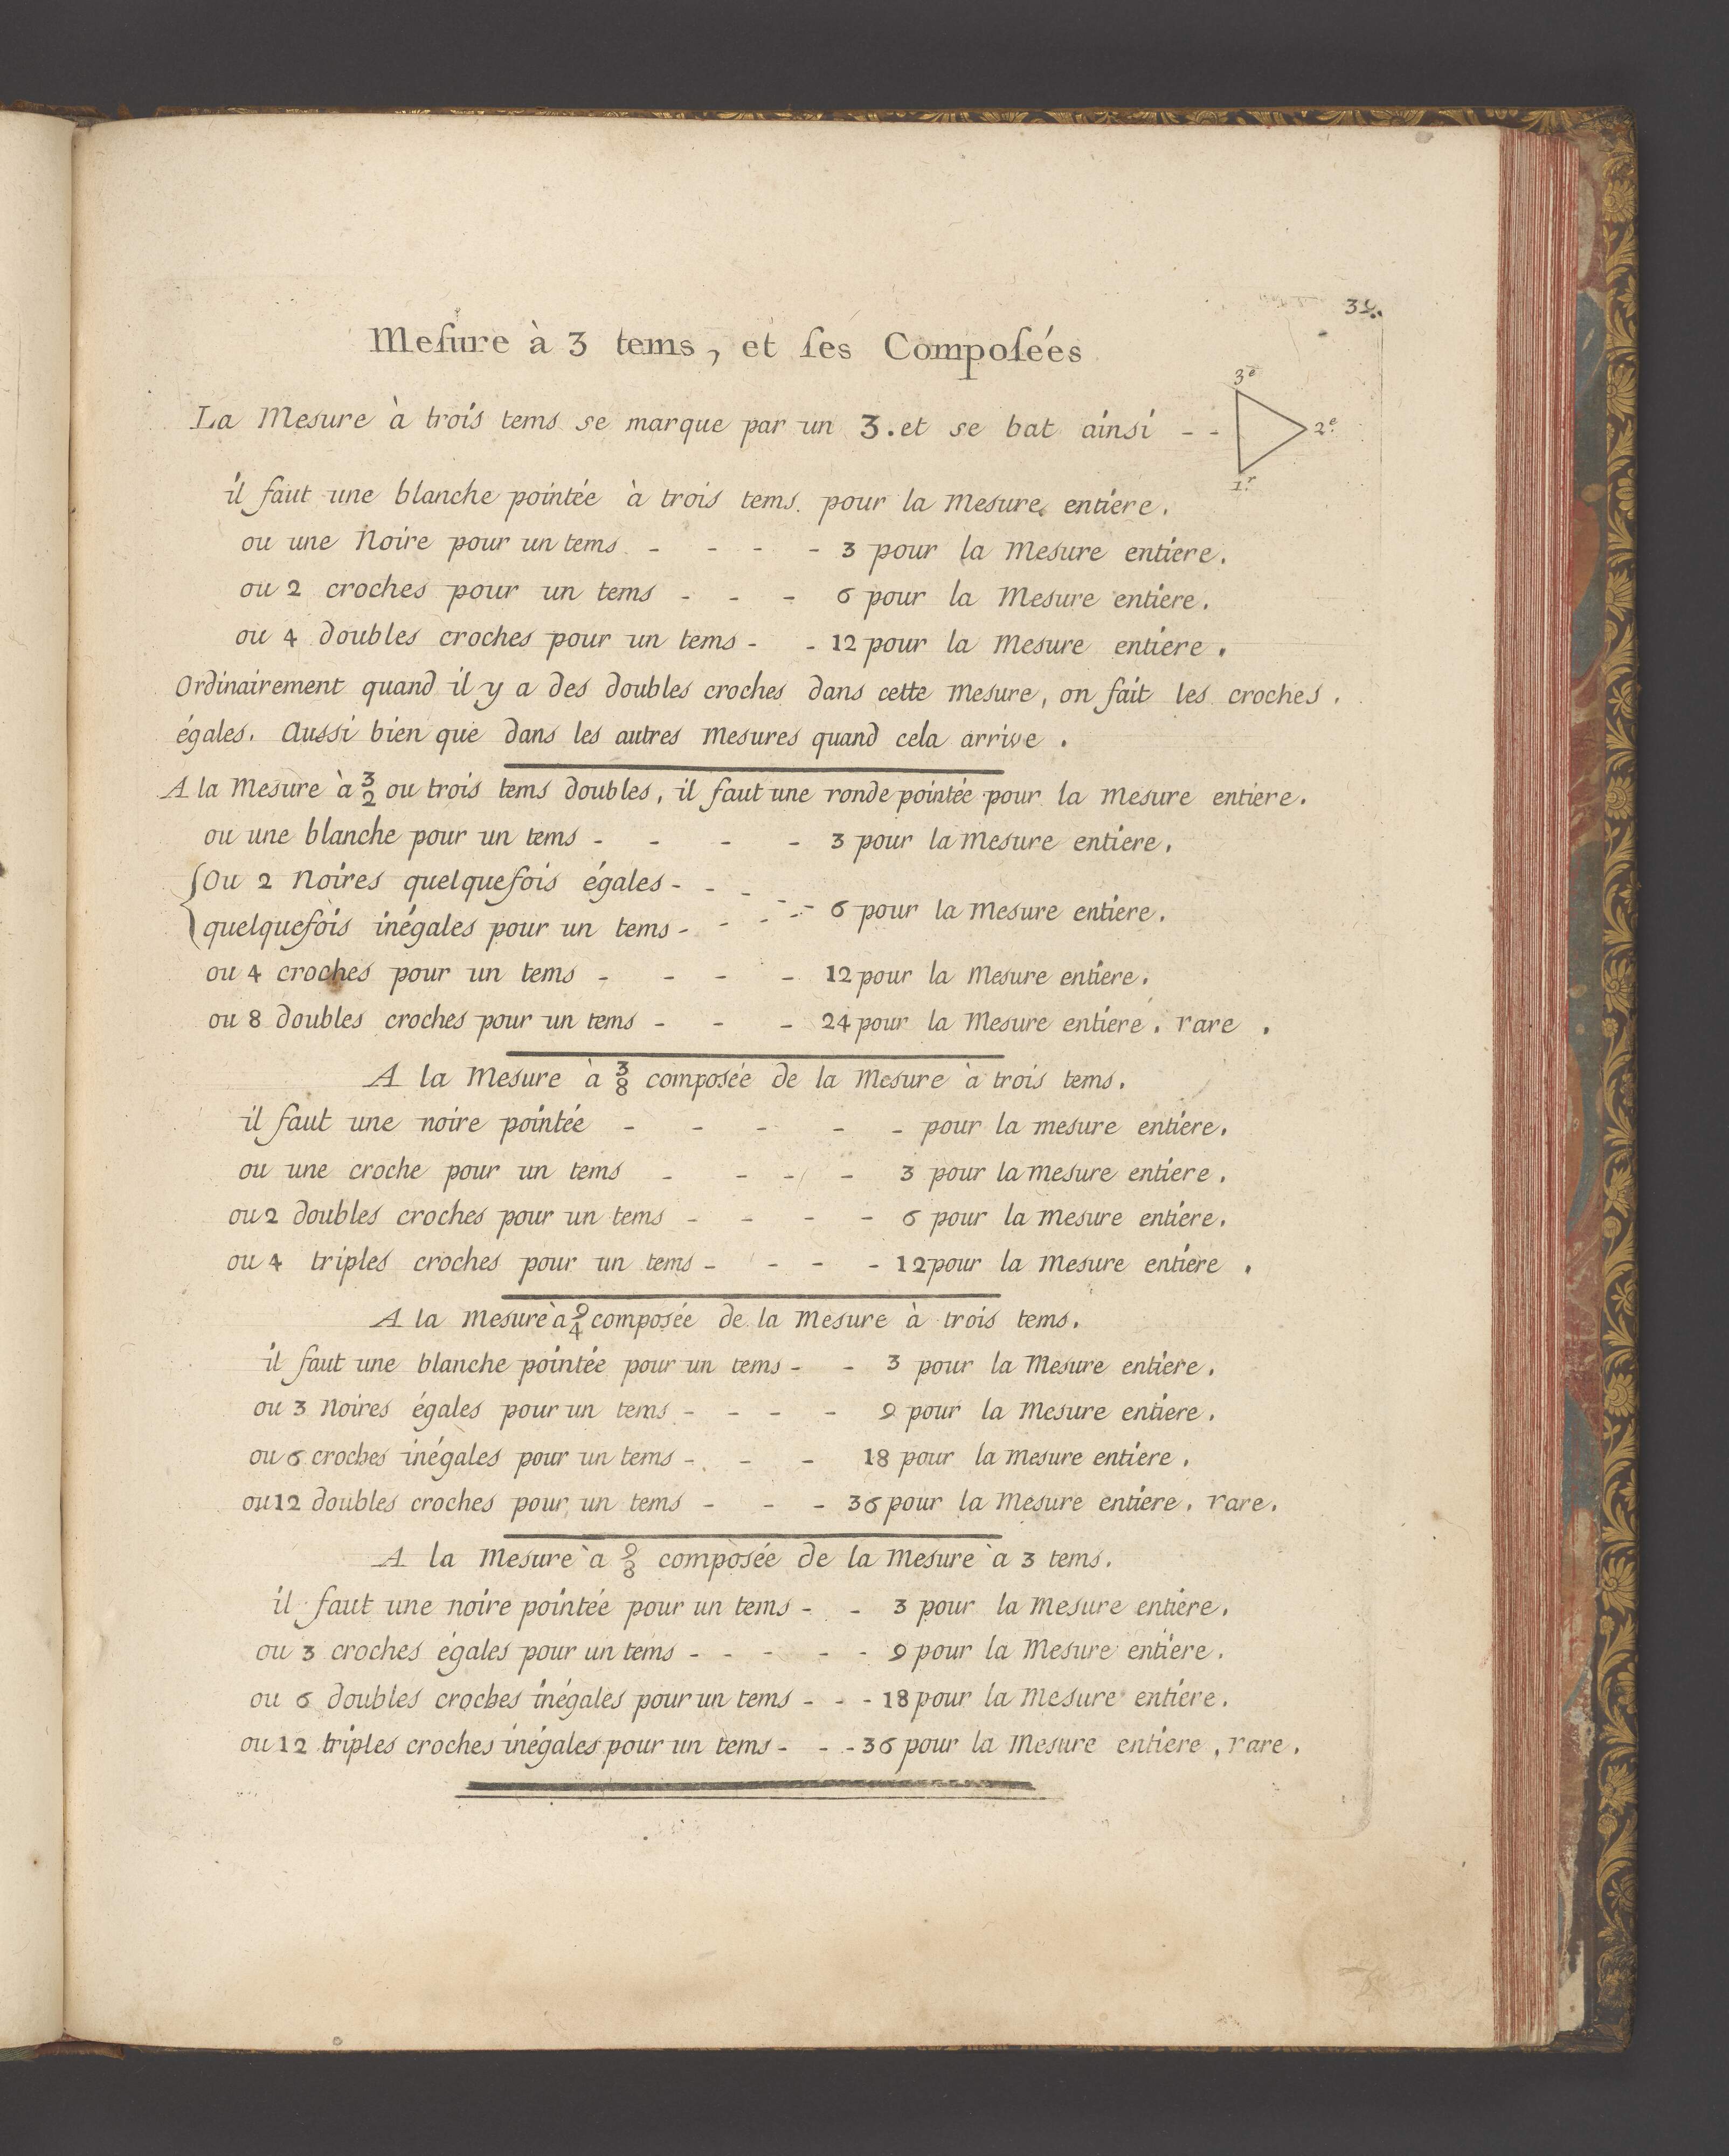 Meſure à 3 tems, et ſes Compoſées
La Mesure à trois tems se marque par un 3. et se bat ainsi - -
3e
2e.
1r.
il faut une blanche pointée à trois tems. pour la Mesure entiére.
ou une Noire pour un tems - - - - 3 pour la Mesure entiere.
ou 2 croches pour un tems - - - 6 pour la Mesure entiere.
ou 4 doubles croches pour un tems - - 12 pour la Mesure entiere.
Ordinairement quand il y a des doubles croches dans cette Mesure, on fait les croches.
égales. Aussi bien que dans les autres Mesures quand cela arrive.
A la Mesure à 3/2 ou trois tems doubles, il faut une ronde pointée pour la Mesure entiere.
ou une blanche pour un tems - - - - 3 pour la Mesure entiere.
Ou 2 Noires quelquefois égales - - - - -
quelquefois inégales pour un tems - - - - 6 pour la Mesure entiere.
ou 4 croches pour un tems - - - - 12 pour la Mesure entiere.
ou 8 doubles croches pour un tems - - - 24 pour la Mesure entiere. rare.
A la Mesure à 3/8 composée de la Mesure à trois tems.
il faut une noire pointée - - - - - pour la mesure entiére.
ou une croche pour un tems - - - - 3 pour la mesure entiere.
ou 2 doubles croches pour un tems - - - - 6 pour la mesure entiére.
ou 4 triples croches pour un tems - - - - 12 pour la Mesure entiére.
A la Mesure à 9/4 composée de la Mesure à trois tems.
il faut une blanche pointée pour un tems - - 3 pour la Mesure entiere.
ou 3 Noires égales pour un tems - - - - 9 pour la Mesure entiere.
ou 6 croches inégales pour un tems - - - 18 pour la Mesure entiére.
ou 12 doubles croches pour un tems - - - 36 pour la Mesure entiere. rare.
A la Mesure à 9/8 composée de la Mesure à 3 tems.
il faut une noire pointée pour un tems - - 3 pour la Mesure entiére.
ou 3 croches égales pour un tems - - - - - 9 pour la Mesure entiere.
ou 6 doubles croches inégales pour un tems - - - 18 pour la Mesure entiere.
ou 12 triples croches inégales pour un tems - - - 36 pour la Mesure entiere, rare.